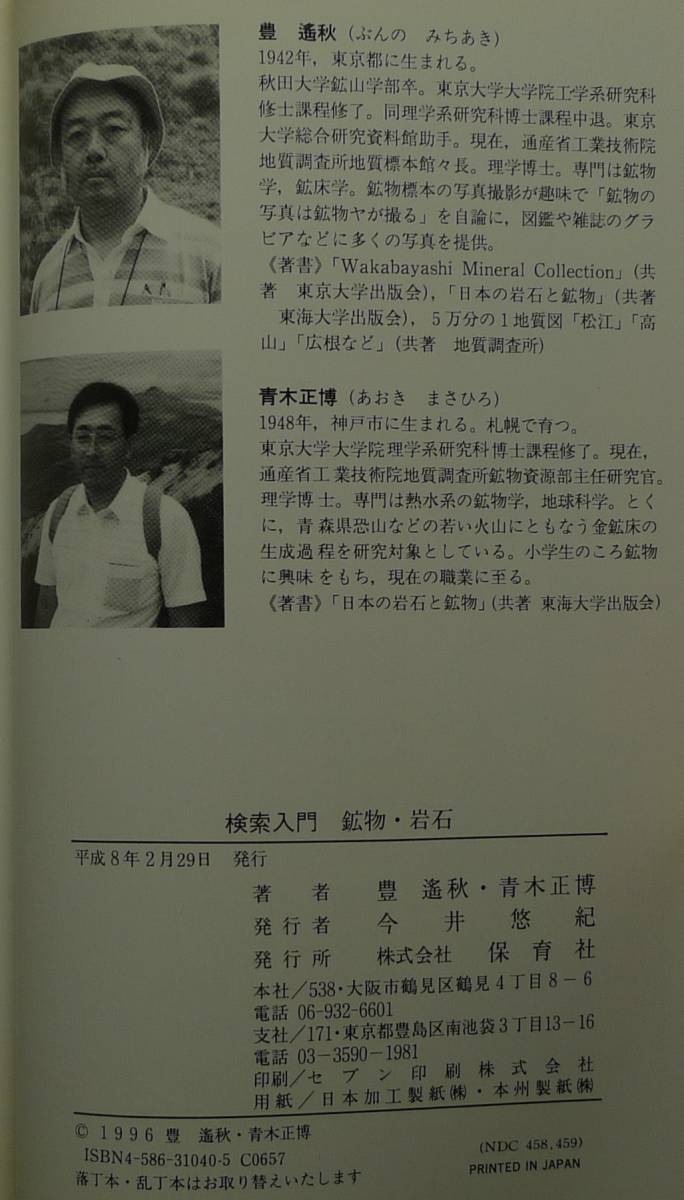 豊　遙秋（ぶんの　みちあき）
1942年，東京都に生まれる。
秋田大学鉱山学部卒。東京大学大学院工学系研究科
修士課程修了。同理学系研究科博士課程中退。東京
大学総合研究資料館助手。現在，通産省工業技術院
地質調査所地質標本館々長。理学博士。専門は鉱物
学，鉱床学。鉱物標本の写真撮影が趣味で「鉱物の
写真は鉱物ヤが撮る」を自論に，図鑑や雑誌のグラ
ビアなどに多くの写真を提供。
《著書》「Wakabayashi Mineral Collection」（共
著　東京大学出版会），「日本の岩石と鉱物」（共著
　東海大学出版会），５万分の１地質図「松江」「高
山」「広根など」（共著　地質調査所）
青木正博（あおき　まさひろ）
1948年，神戸市に生まれる。札幌で育つ。
東京大学大学院理学系研究科博士課程修了。現在，
通産省工業技術院地質調査所鉱物資源部主任研究官。
理学博士。専門は熱水系の鉱物学，地球科学。とく
に，青森県恐山などの若い火山にともなう金鉱床の
生成過程を研究対象としている。小学生のころ鉱物
に興味をもち，現在の職業に至る。
《著書》「日本の岩石と鉱物」（共著 東海大学出版会）
検索入門　鉱物・岩石
平成８年２月29日　発行
著　者　豊　遙秋・青木正博
発行者　今井悠紀
発行所　株式会社　保育社
本社／538・大阪市鶴見区鶴見４丁目８－６
電話 06-932-6601
支社／171・東京都豊島区南池袋３丁目13－16
電話 03－3590－1981
印刷／セブン印刷株式会社
用紙／日本加工製紙㈱・本州製紙㈱
© 1996 豊　遙秋・青木正博
ISBN4-586-31040-5 C0657
落丁本・乱丁本はお取り替えいたします
(NDC 458,459)
PRINTED IN JAPAN